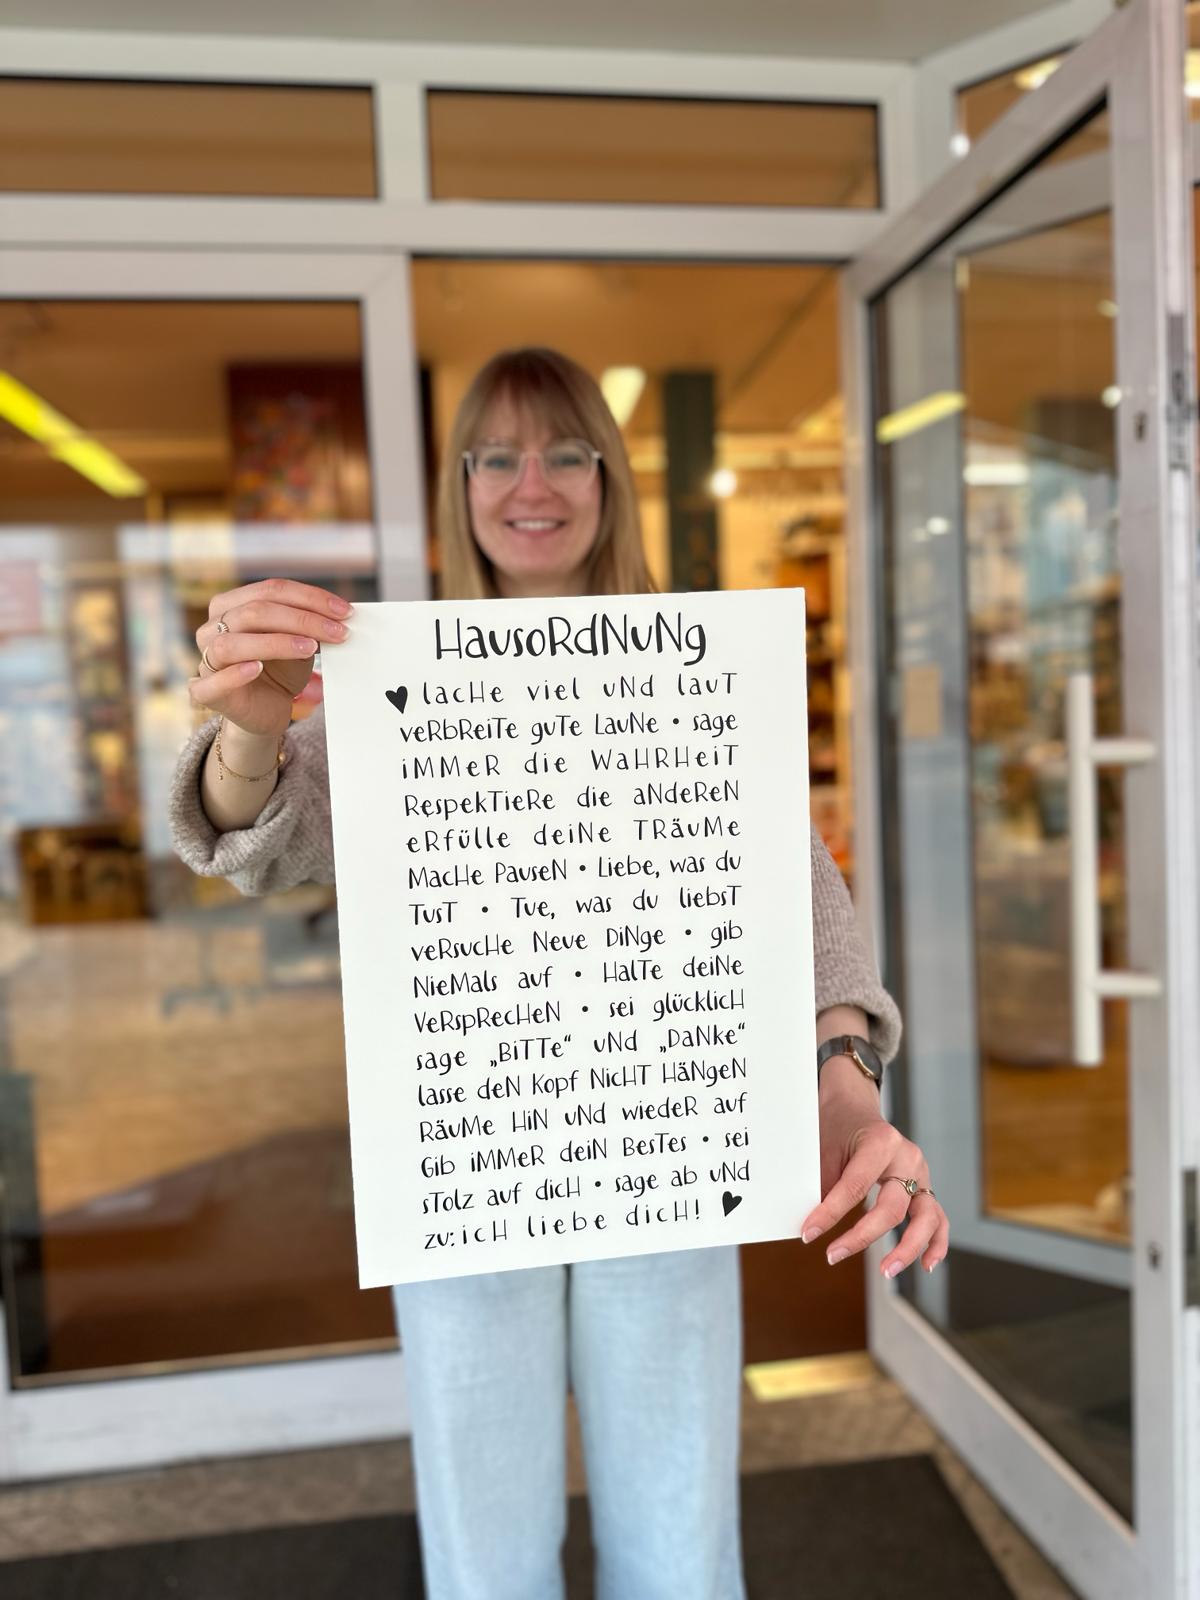 HausoRdNuNg
♥ lacHe viel uNd lauT
veRbReiTe guTe LauNe • sage
iMMeR die WaHRHeiT
RespekTieRe die aNdeReN
eRfülle deiNe TRäuMe
MacHe PauseN • Liebe, was du
TusT • Tue, was du liebsT
veRsucHe Neue DiNge • gib
NieMals auf • HalTe deiNe
VeRspRecHeN • sei glücklicH
sage „BiTTe“ uNd „DaNke“
lasse deN Kopf NicHT HäNgeN
RäuMe HiN uNd wiedeR auf
Gib iMMeR deiN BesTes • sei
sTolz auf dicH • sage ab uNd
zu: icH liebe dicH! ♥